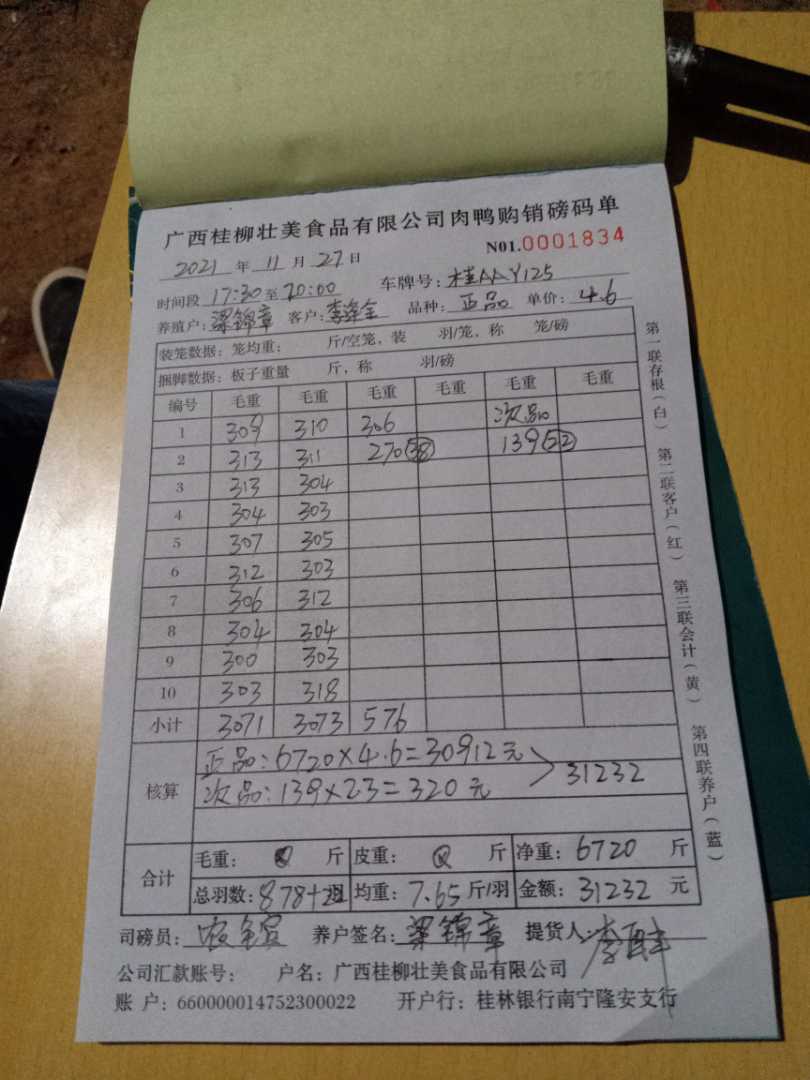 广西桂柳壮美食品有限公司肉鸭购销磅码单
2021 年 11 月 27 日 N01.0001834
时间段 17:30 至 20:00 车牌号: 桂AAY125
养殖户: 梁锦章 客户: 品种: 正品 单价: 4.6
装笼数据: 笼均重: 斤/空笼, 装 羽/笼, 称 笼/磅
捆脚数据: 板子重量 斤, 称 羽/磅
编号 毛重 毛重 毛重 毛重 毛重 毛重
1 309 310 306 次品
2 313 311 270(38) 139(22)
3 313 304
4 304 303
5 307 305
6 312 303
7 306 312
8 304 304
9 300 303
10 303 318
小计 3071 3073 576
核算 正品: 6720×4.6=30912元
次品: 139×2.3=320元 31232
合计 毛重: 斤 皮重: 斤 净重: 6720 斤
总羽数: 878+22 均重: 7.65 斤/羽 金额: 31232 元
司磅员: 养户签名: 梁锦章 提货人:
公司汇款账号: 户名: 广西桂柳壮美食品有限公司
账 户: 660000014752300022 开户行: 桂林银行南宁隆安支行
第一联存根(白) 第二联客户(红) 第三联会计(黄) 第四联养户(蓝)